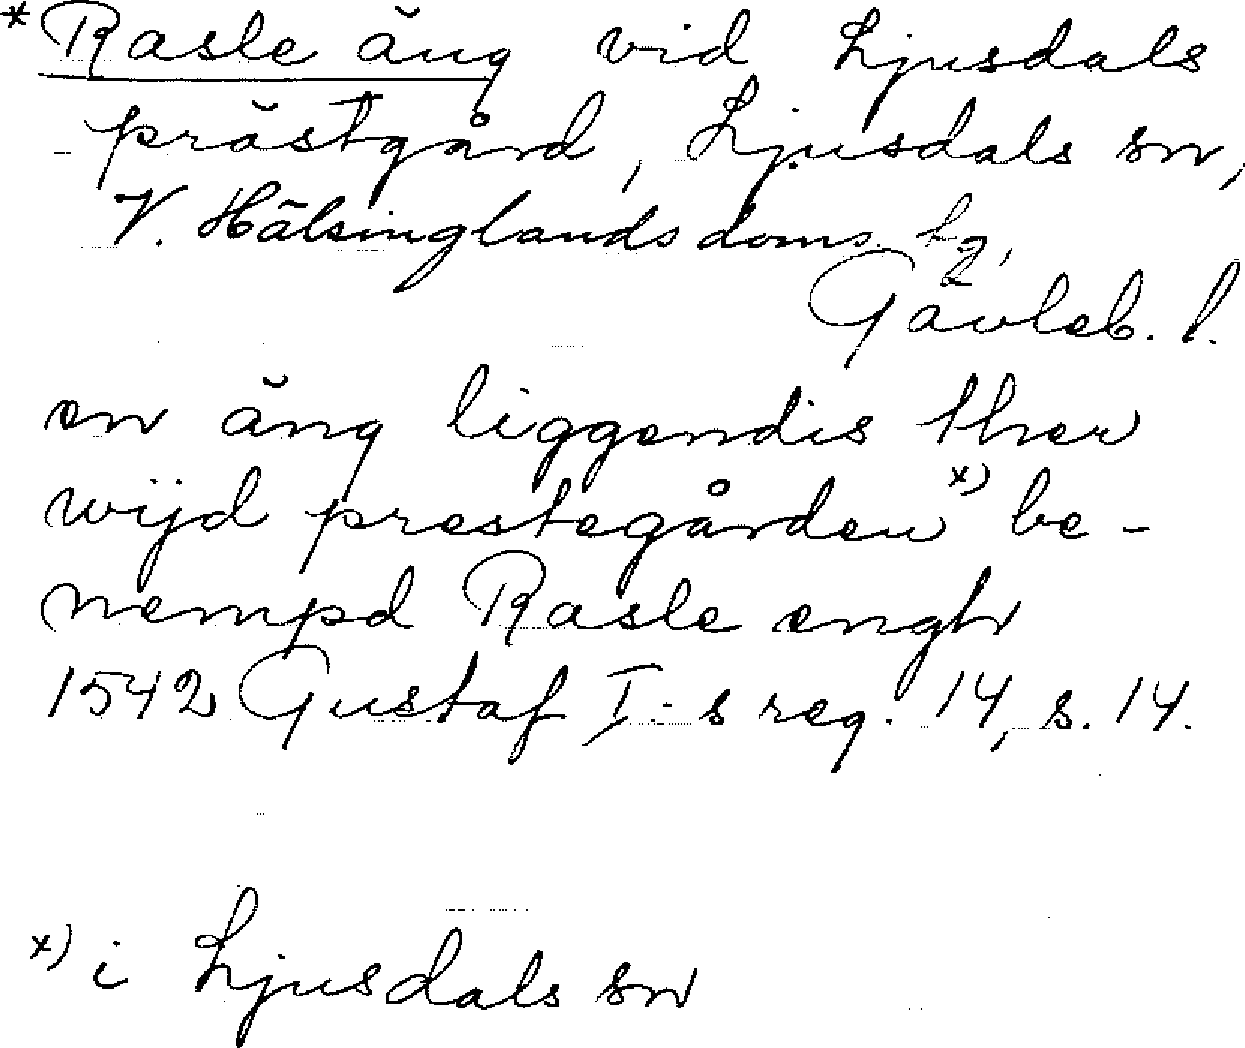 * Rasle äng vid Ljusdals
prästgård, Ljusdals sn,
V. Hälsinglands doms. bg,
Gävleb. l.
en äng liggendis ther
wijd prestegården x) be-
nempd Rasle engh
1542 Gustaf I:s reg. 14, s. 14.
x) i Ljusdals sn